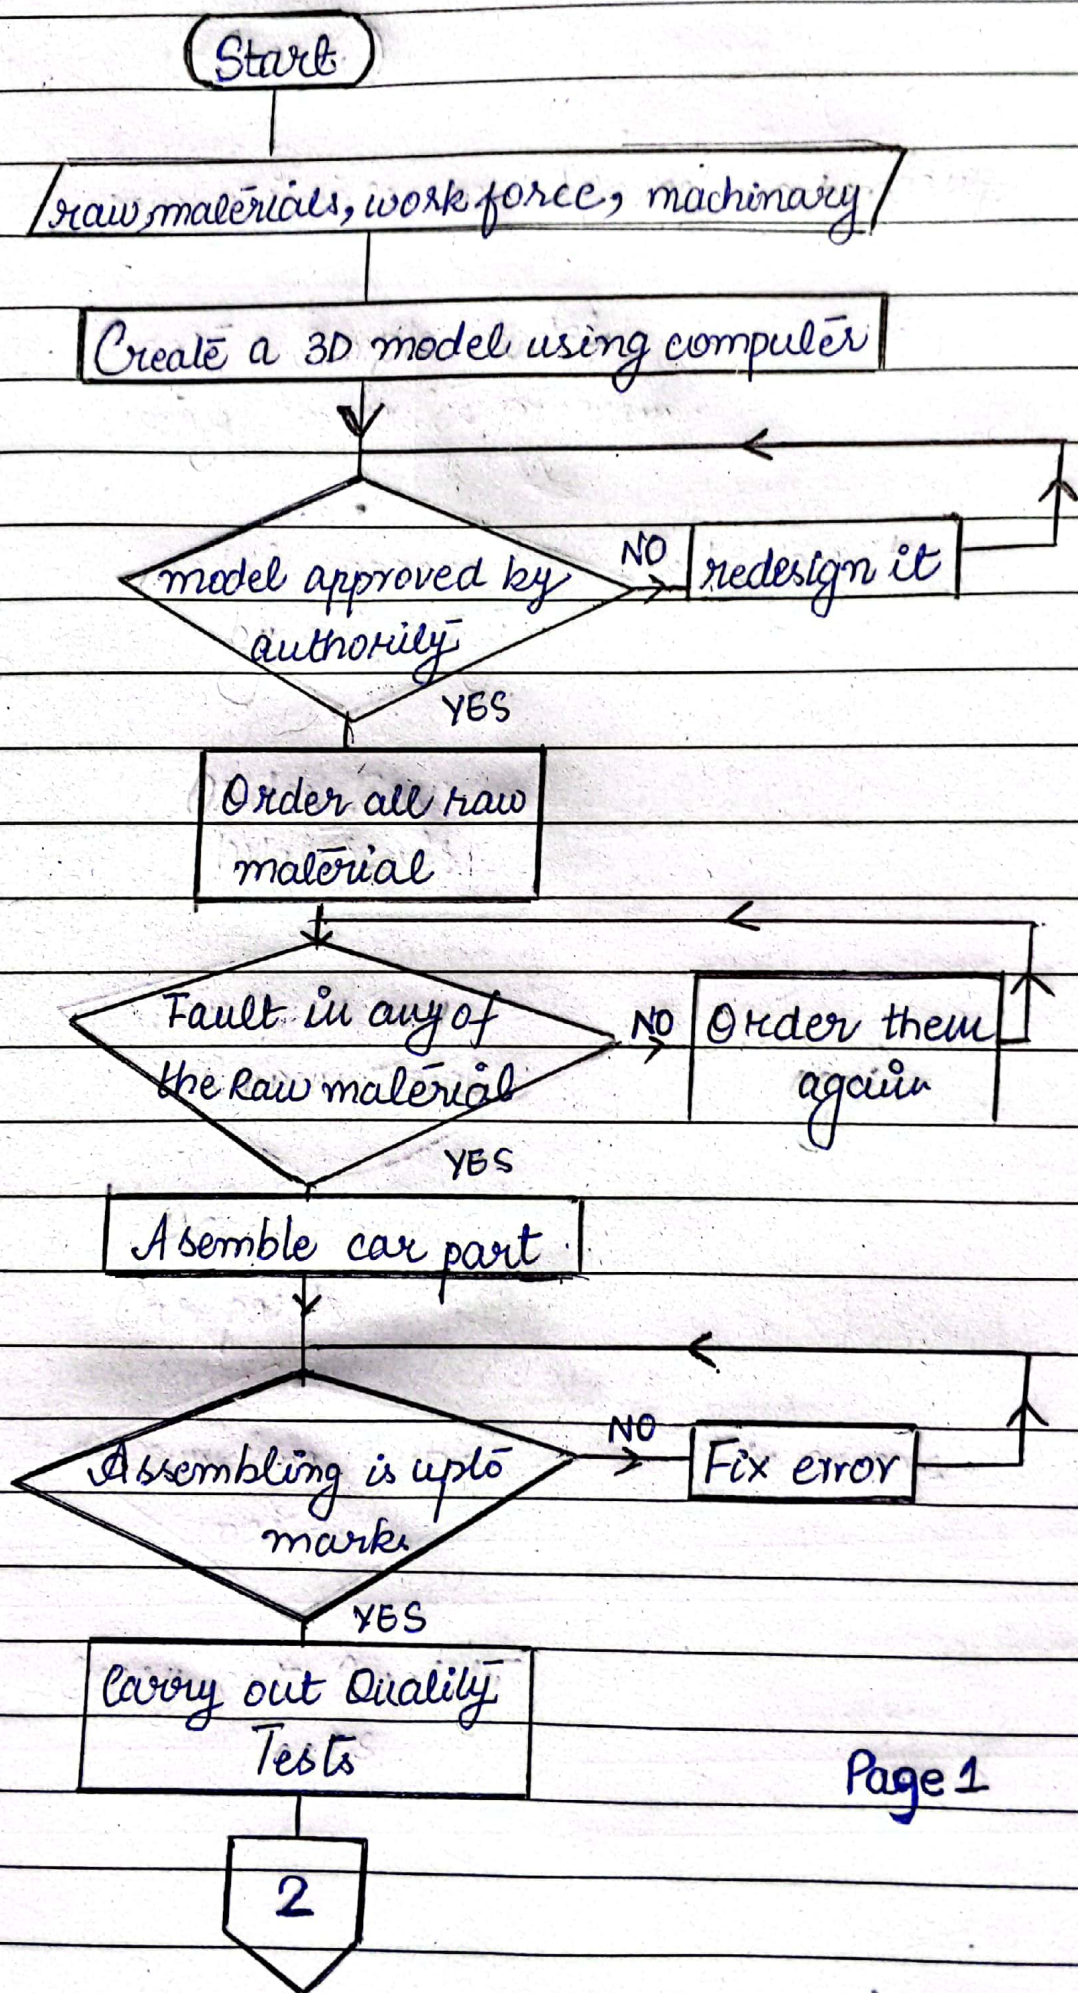 Start
raw materials, work force, machinary
Create a 3D model using computer
model approved by
authority
NO
redesign it
YES
Order all raw
material
Fault in any of
the Raw material
NO
Order them
again
YES
Asemble car part
Assembling is upto
mark
NO
Fix error
YES
Carry out Quality
Tests
Page 1
2